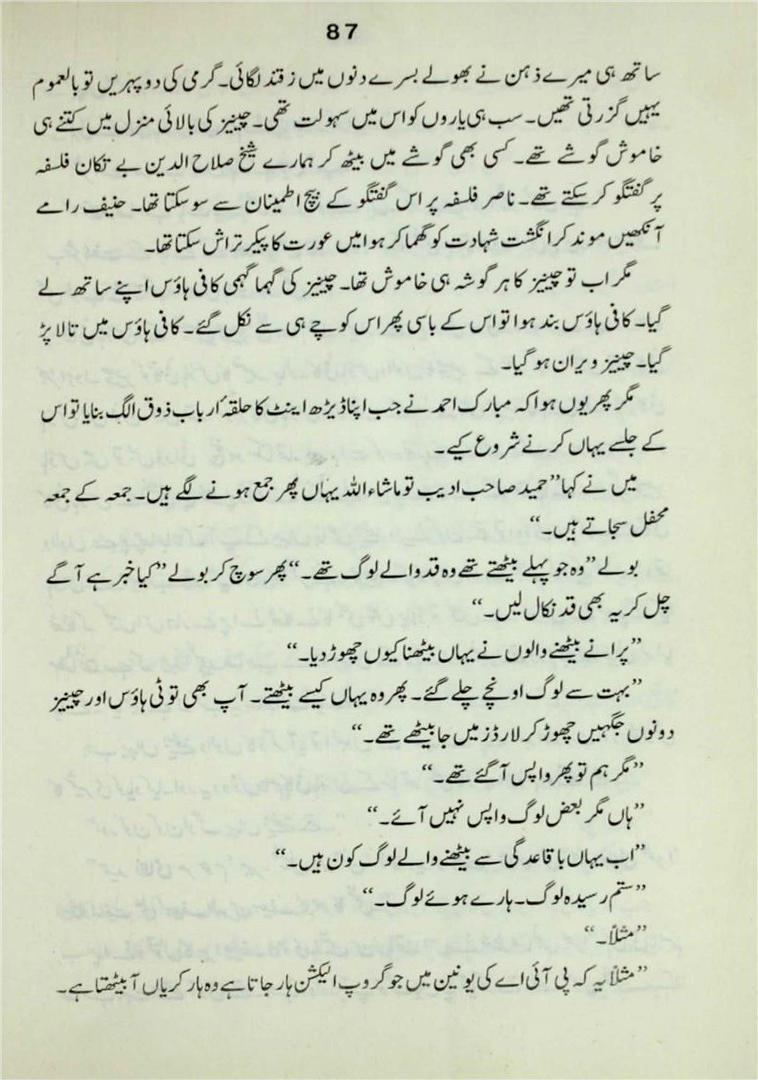 87
ساتھ ہی میرے ذہن نے بھولے بسرے دنوں میں زقند لگائی۔ گرمی کی دوپہریں تو بالعموم
یہیں گزرتی تھیں۔ سب ہی یاروں کو اس میں سہولت تھی۔ چینیز کی بالائی منزل میں کتنے ہی
خاموش گوشے تھے۔ کسی بھی گوشے میں بیٹھ کر ہمارے شیخ صلاح الدین بے تکان فلسفہ
پر گفتگو کر سکتے تھے۔ ناصر فلسفہ پر اس گفتگو کے بیچ اطمینان سے سو سکتا تھا۔ حنیف رامے
آنکھیں موند کر انگشت شہادت کو گھما کر ہوا میں عورت کا پیکر تراش سکتا تھا۔
مگر اب تو چینیز کا ہر گوشہ ہی خاموش تھا۔ چینیز کی گہما گہمی کافی ہاؤس اپنے ساتھ لے
گیا۔ کافی ہاؤس بند ہوا تو اس کے باسی پھر اس کوچے ہی سے نکل گئے۔ کافی ہاؤس میں تالا پڑ
گیا۔ چینیز ویران ہو گیا۔
مگر پھر یوں ہوا کہ مبارک احمد نے جب اپنا ڈیڑھ اینٹ کا حلقۂ ارباب ذوق الگ بنایا تو اس
کے جلسے یہاں کرنے شروع کیے۔
میں نے کہا ”حمید صاحب ادیب تو ماشاء اللہ یہاں پھر جمع ہونے لگے ہیں۔ جمعہ کے جمعہ
محفل سجاتے ہیں۔“
بولے ”وہ جو پہلے بیٹھتے تھے وہ قد والے لوگ تھے۔“ پھر سوچ کر بولے ”کیا خبر ہے آگے
چل کر یہ بھی قد نکال لیں۔“
”پرانے بیٹھنے والوں نے یہاں بیٹھنا کیوں چھوڑ دیا۔“
”بہت سے لوگ اونچے چلے گئے۔ پھر وہ یہاں کیسے بیٹھتے۔ آپ بھی تو ٹی ہاؤس اور چینیز
دونوں جگہیں چھوڑ کر لارڈز میں جا بیٹھے تھے۔“
”مگر ہم تو پھر واپس آ گئے تھے۔“
”ہاں مگر بعض لوگ واپس نہیں آئے۔“
”اب یہاں باقاعدگی سے بیٹھنے والے لوگ کون ہیں۔“
”ستم رسیدہ لوگ۔ ہارے ہوئے لوگ۔“
”مثلاً۔“
”مثلاً یہ کہ پی آئی اے کی یونین میں جو گروپ الیکشن ہار جاتا ہے وہ ہار کر یاں آ بیٹھتا ہے۔